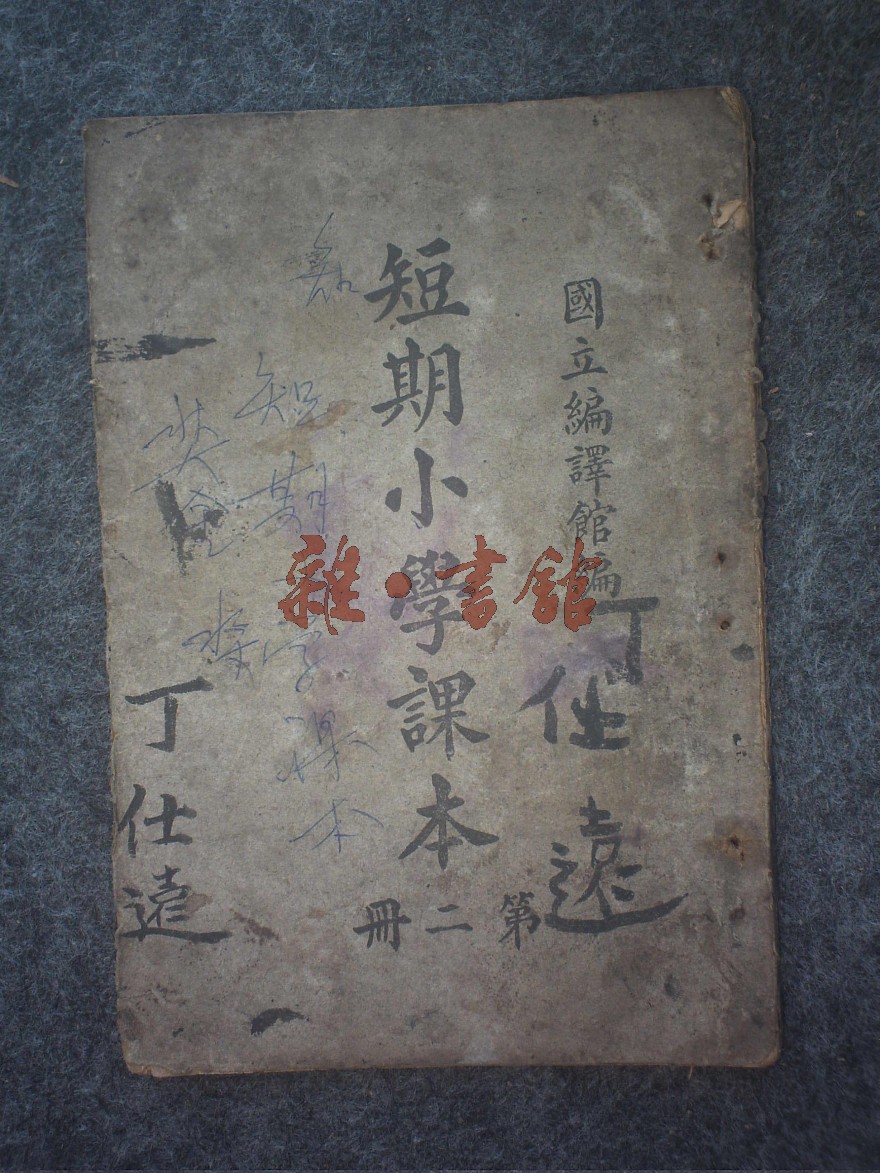 國立編譯館編
丁仕遠
短期小學課本
第二冊
短期小学课本
丁仕遠
雜·書館